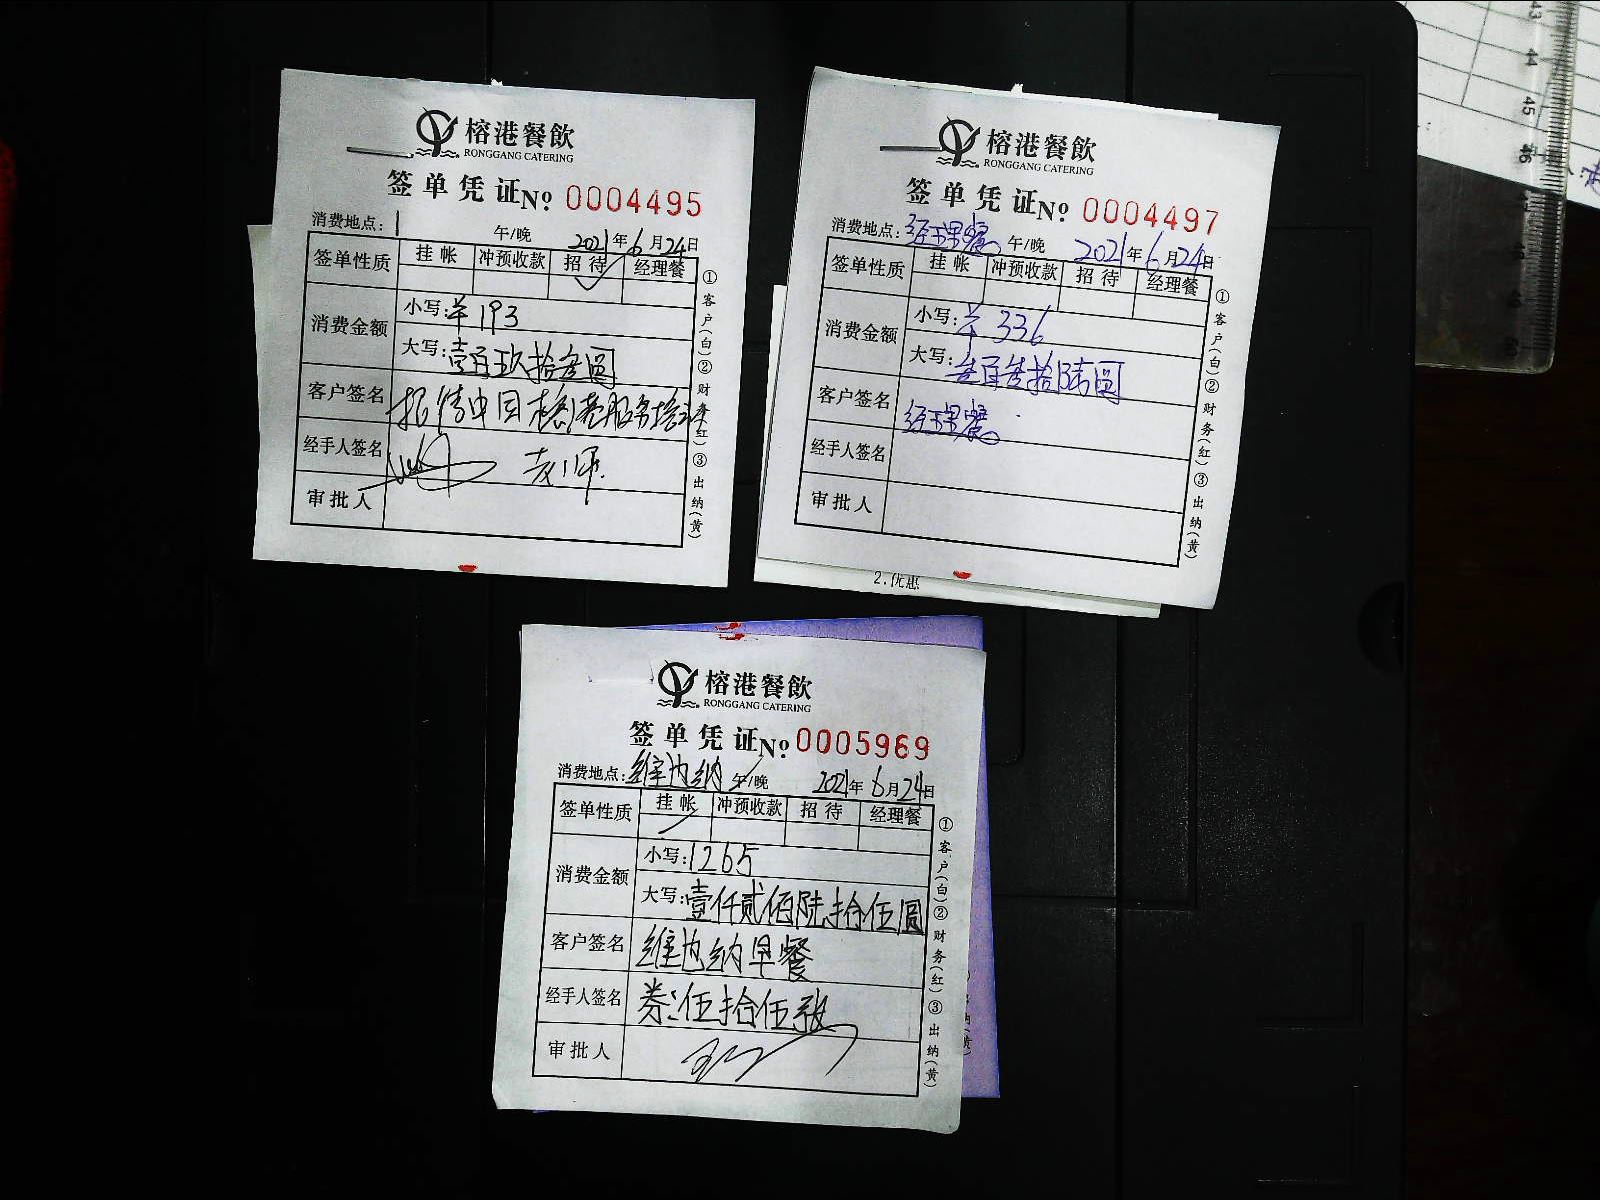 榕港餐飲
RONGGANG CATERING
签单凭证№ 0004495
消费地点: 1 午/晚 2021年6月24日
签单性质 挂帐 冲预收款 招待 经理餐
✓
消费金额 小写:羊193
大写:壹百玖拾叁圆
客户签名 招待中日
经手人签名
审批人
①客户(白)②财务(红)③出纳(黄)
榕港餐飲
RONGGANG CATERING
签单凭证№ 0004497
消费地点: 经理餐 午/晚 2021年6月24日
签单性质 挂帐 冲预收款 招待 经理餐
消费金额 小写:羊336
大写:叁百叁拾陆圆
客户签名 经理餐
经手人签名
审批人
①客户(白)②财务(红)③出纳(黄)
2.优惠
榕港餐飲
RONGGANG CATERING
签单凭证№ 0005969
消费地点: 维也纳 午/晚 2021年6月24日
签单性质 挂帐 冲预收款 招待 经理餐
消费金额 小写:1265
大写:壹仟贰佰陆拾伍圆
客户签名 维也纳早餐
经手人签名 券:伍拾伍张
审批人
①客户(白)②财务(红)③出纳(黄)